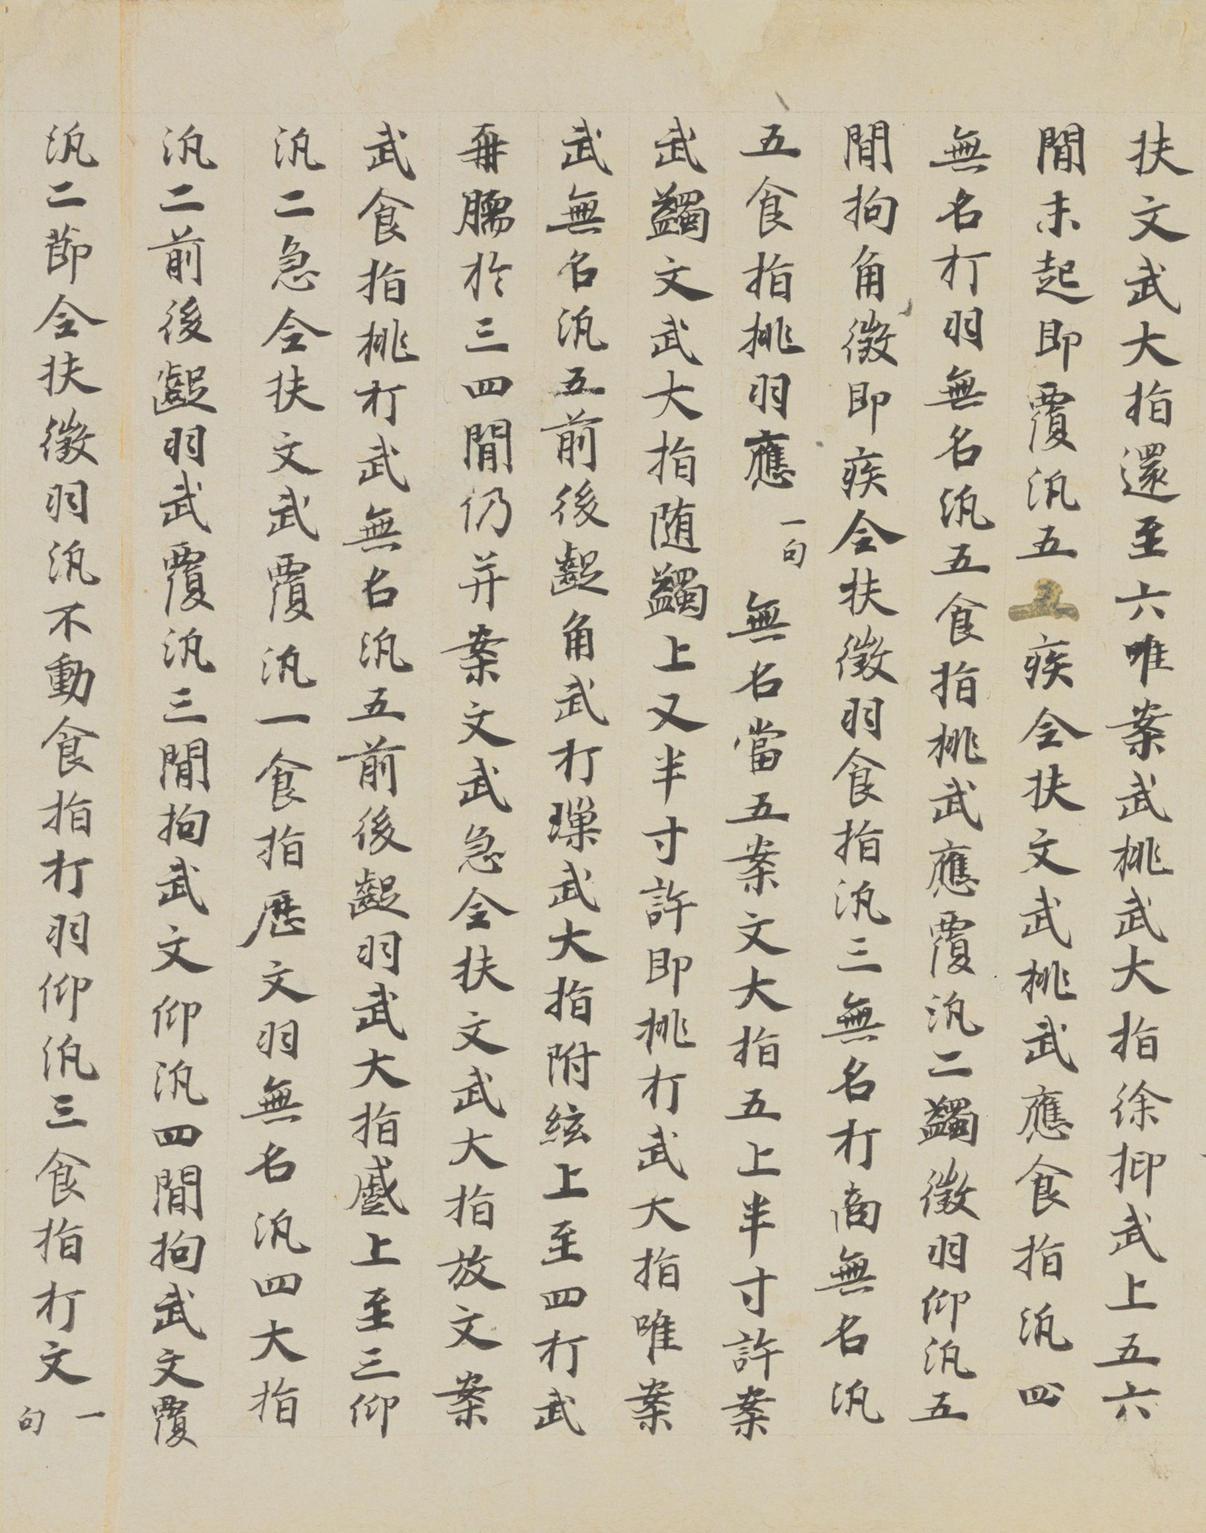 扶文武大指還至六唯案武桃武大指徐抑武上五六
閒未起即覆汎五疾全扶文武桃武應食指汎四
無名打羽無名汎五食指桃武應覆汎二蠲徵羽仰汎五
閒拘角徵即疾全扶徵羽食指汎三無名打商無名汎
五食指桃羽應一句無名當五案文大指五上半寸許案
武蠲文武大指随蠲上又半寸許即桃打武大指唯案
武無名汎五前後齪角武打武大指附絃上至四打武
於三四閒仍并案文武急全扶文武大指放文案
武食指桃打武無名汎五前後齪羽武大指上至三仰
汎二急全扶文武覆汎一食指歷文羽無名汎四大指
汎二前後齪羽武覆汎三閒拘武文仰汎四閒拘武文覆
汎二節全扶徵羽汎不動食指打羽仰汎三食指打文一句